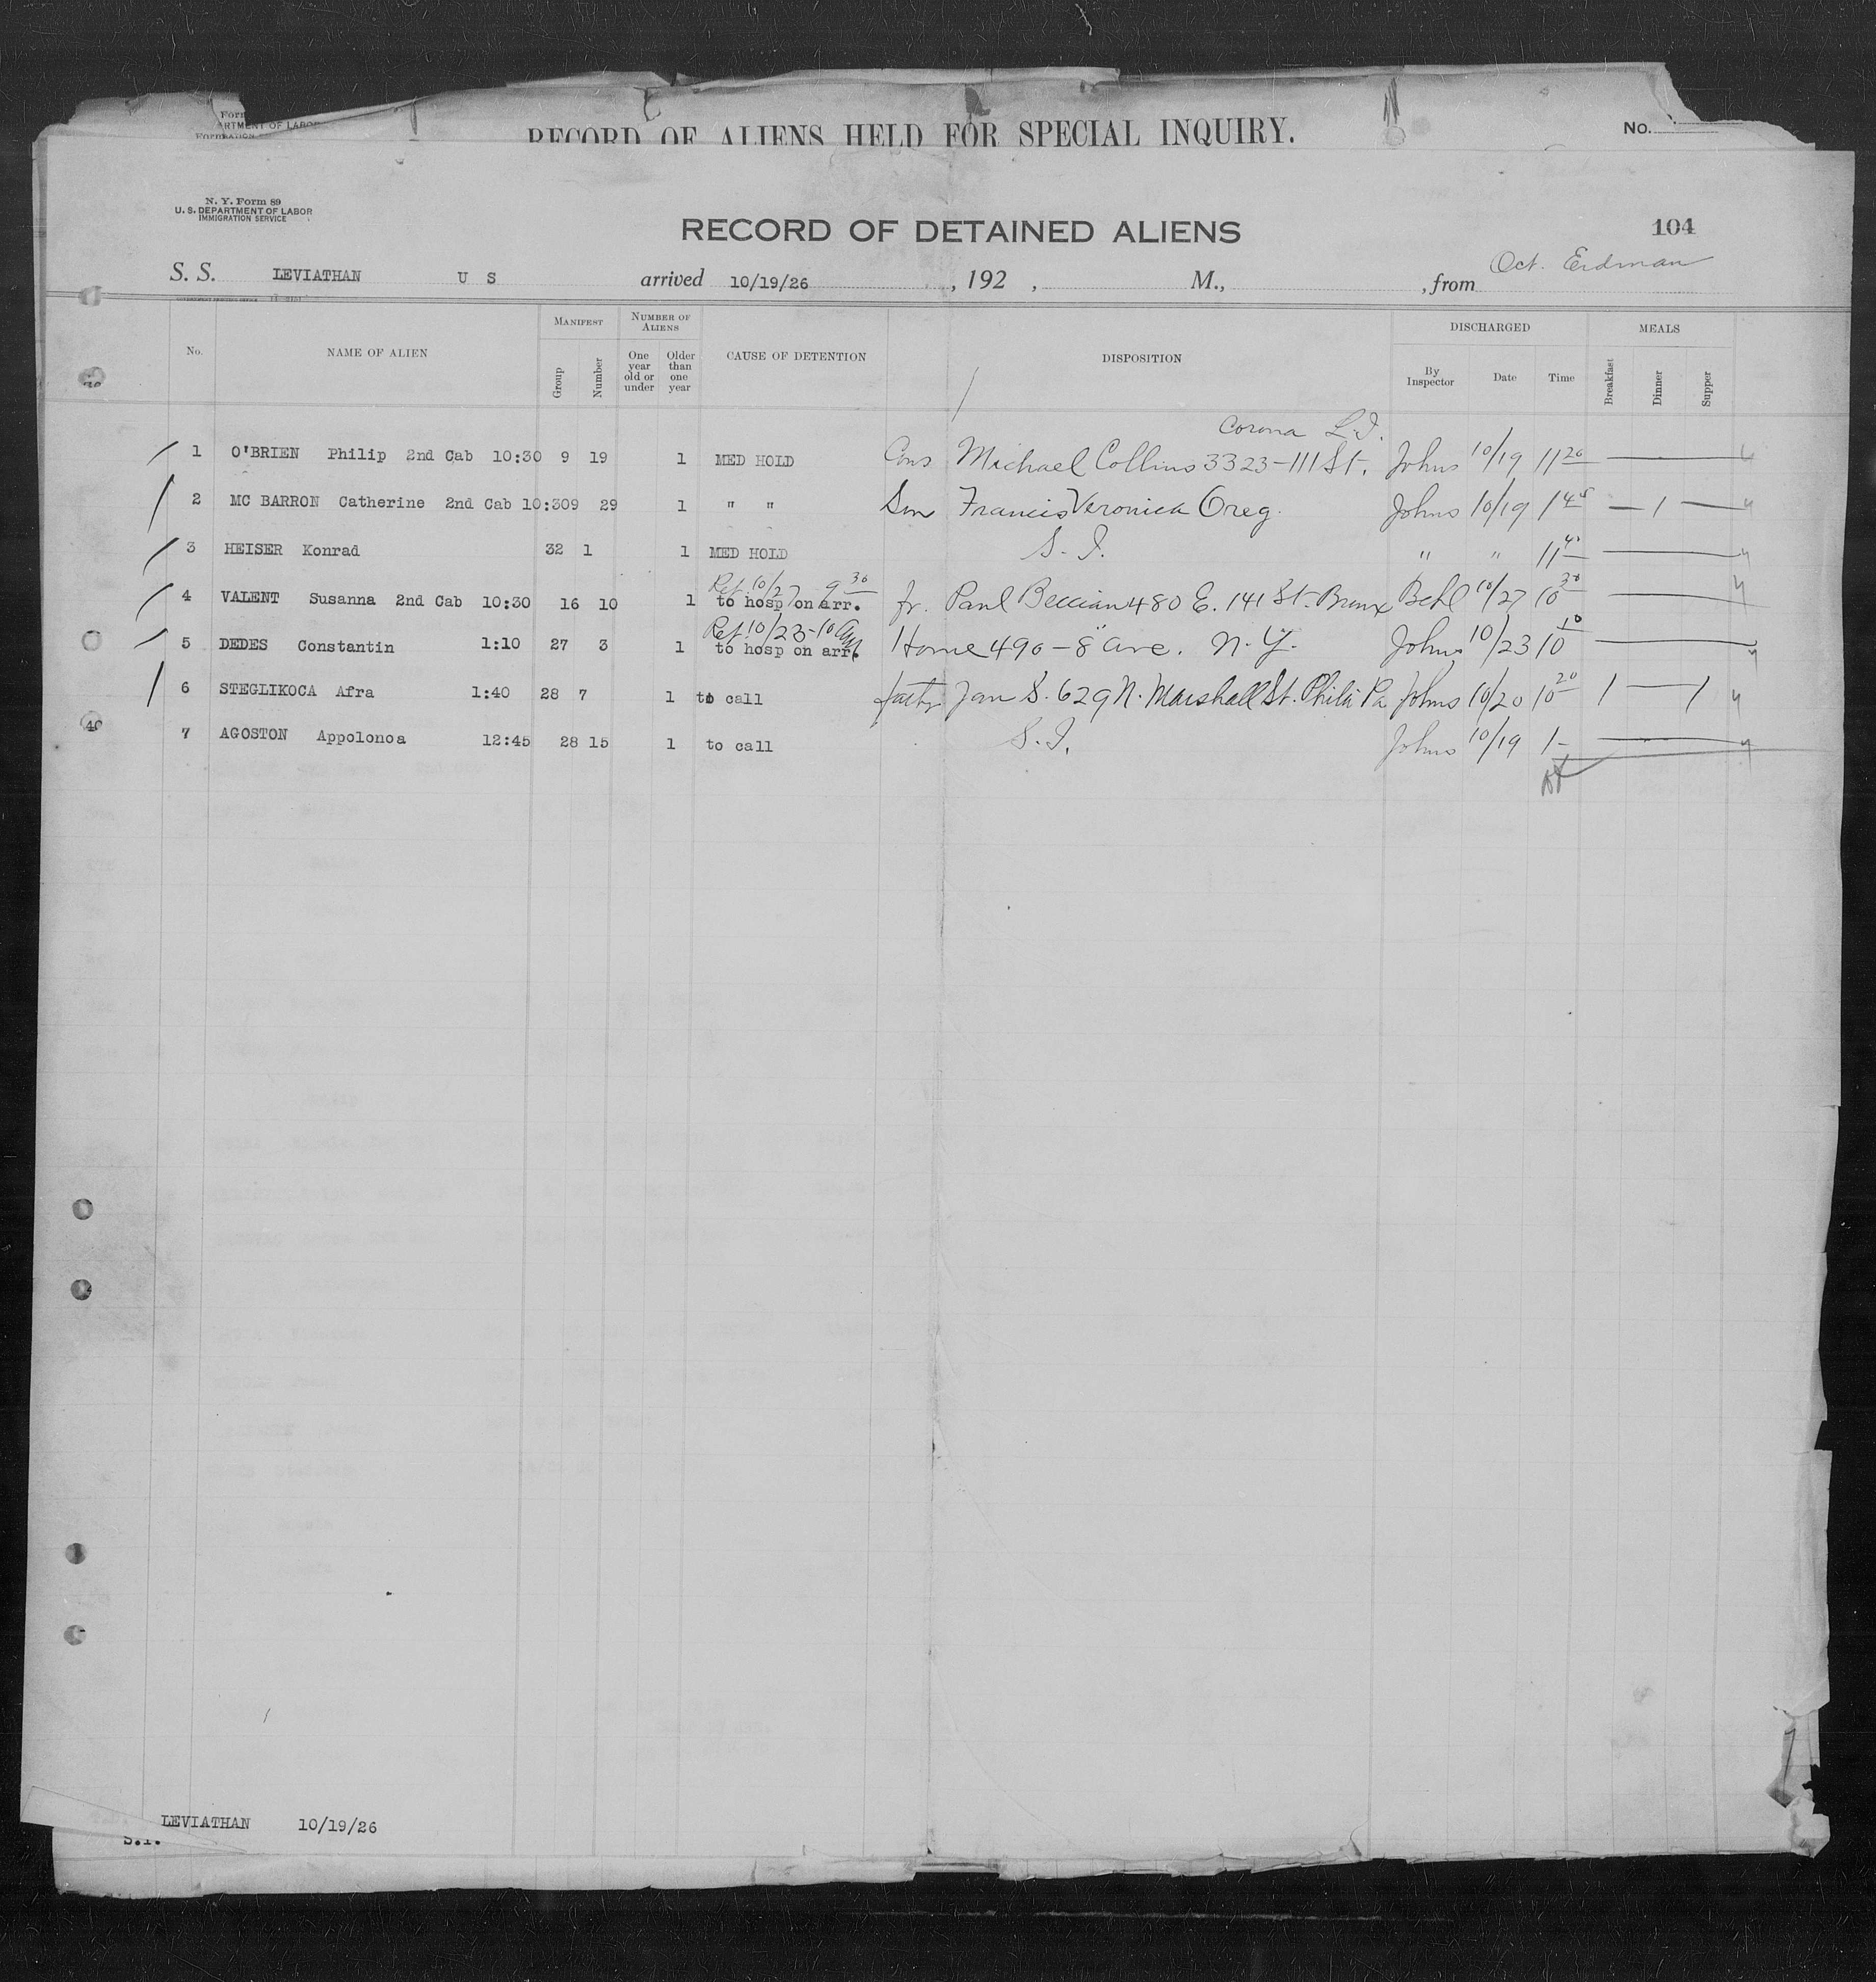 RECORD OF ALIENS HELD FOR SPECIAL INQUIRY.
No.
N. Y. Form 89
U. S. DEPARTMENT OF LABOR
IMMIGRATION SERVICE
RECORD OF DETAINED ALIENS
104
S. S. LEVIATHAN U S arrived 10/19/26, 192 , M., , from Oct. Erdman
No. NAME OF ALIEN MANIFEST Group Number NUMBER OF ALIENS One year old or under Older than one year CAUSE OF DETENTION DISPOSITION DISCHARGED By Inspector Date Time MEALS Breakfast Dinner Supper
Corona L.I.
1 O'BRIEN Philip 2nd Cab 10:30 9 19 1 MED HOLD Cous Michael Collins 3323-111 St. Johns 10/19 11 20
2 MC BARRON Catherine 2nd Cab 10:309 29 1 " " Son Francis Veronica Oreg. Johns 10/19 1 45 — 1 —
3 HEISER Konrad 32 1 1 MED HOLD S. I. " " 11 40
Ref. 10/27 9 30
4 VALENT Susanna 2nd Cab 10:30 16 10 1 to hosp on arr. fr. Paul 480 E. 141 St. Bronx Behl 10/27 10 30
Ref. 10/23-10 am
5 DEDES Constantin 1:10 27 3 1 to hosp on arr. Home 490-8" ave. N.Y. Johns 10/23 10 10
6 STEGLIKOCA Afra 1:40 28 7 1 to call Jan S. 629 N. Marshall St. Phila Pa Johns 10/20 10 20 1 — 1
7 AGOSTON Appolonoa 12:45 28 15 1 to call S. I. Johns 10/19 1-
LEVIATHAN 10/19/26
S.I.